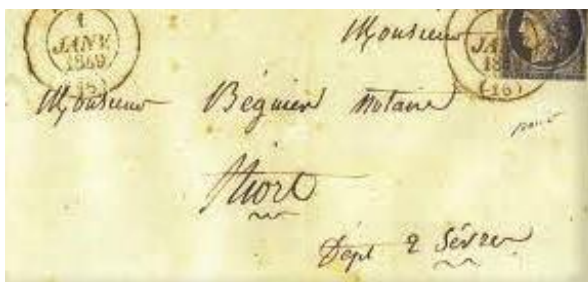 1
JANV
1849
(16)
Monsieur
JA
18
(16)
Monsieur Béguier Notaire
Niort
Dépt 2 Sèvres